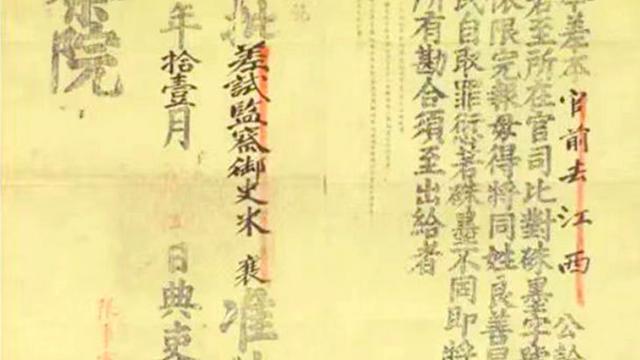 差本官前去江西公幹
若至所在官司比對硃墨字
依限完報毋得將同姓良善
民自取罪愆若硃墨不同即將
所有勘合須至出給者
批差試監察御史米襄准
年拾壹月日典吏
院